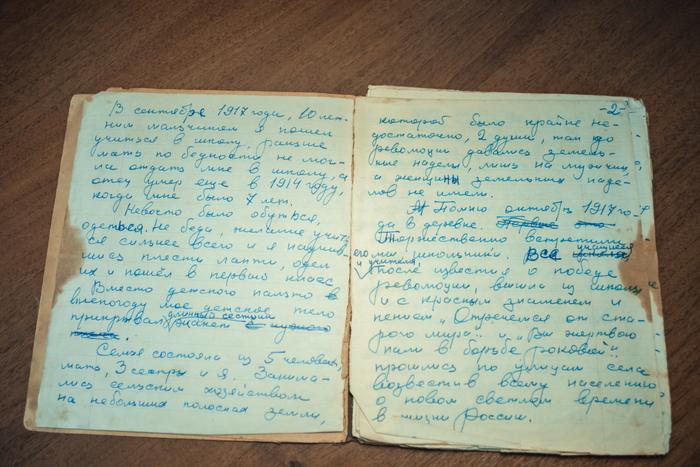 В сентябре 1917 года, 10 лет-
ним мальчиком я пошел
учиться в школу, раньше
мать по бедности не мог-
ла отдать мне в школу, а
отец умер еще в 1914 году,
когда мне было 7 лет.
Нечего было обуться,
одеться. Но беда, желание учит
ся сильнее всего и я научив-
шись плести лапти, одел
их и пошёл в первый класс
Вместо детского пальто в
непогоду мое детское тело
прикрывал длинный сестрин
Семья состояла из 5 человек,
мать, 3 сестры и я. Занима-
лись сельским хозяйством
на небольших полосках земли,
-2-
которой было крайне не-
достаточно, 2 души, так до
революции давались земель-
ные наделы, лишь на мужчин,
а женщины земельных наде-
лов не имели.
Помню октябрь 1917 го-
да в деревне. Первые это
Торжественно встретили
его мы школьники. Все учащиеся
и учителя
После известия о победе
революции, вышли из школы
и с красным знаменем и
пением „Отречемся от ста-
рого мира" и „Вы жертвою
пали в борьбе роковой"
прошлись по улицам села
возвестив всему населению
о новом светлом времени
в жизни России.